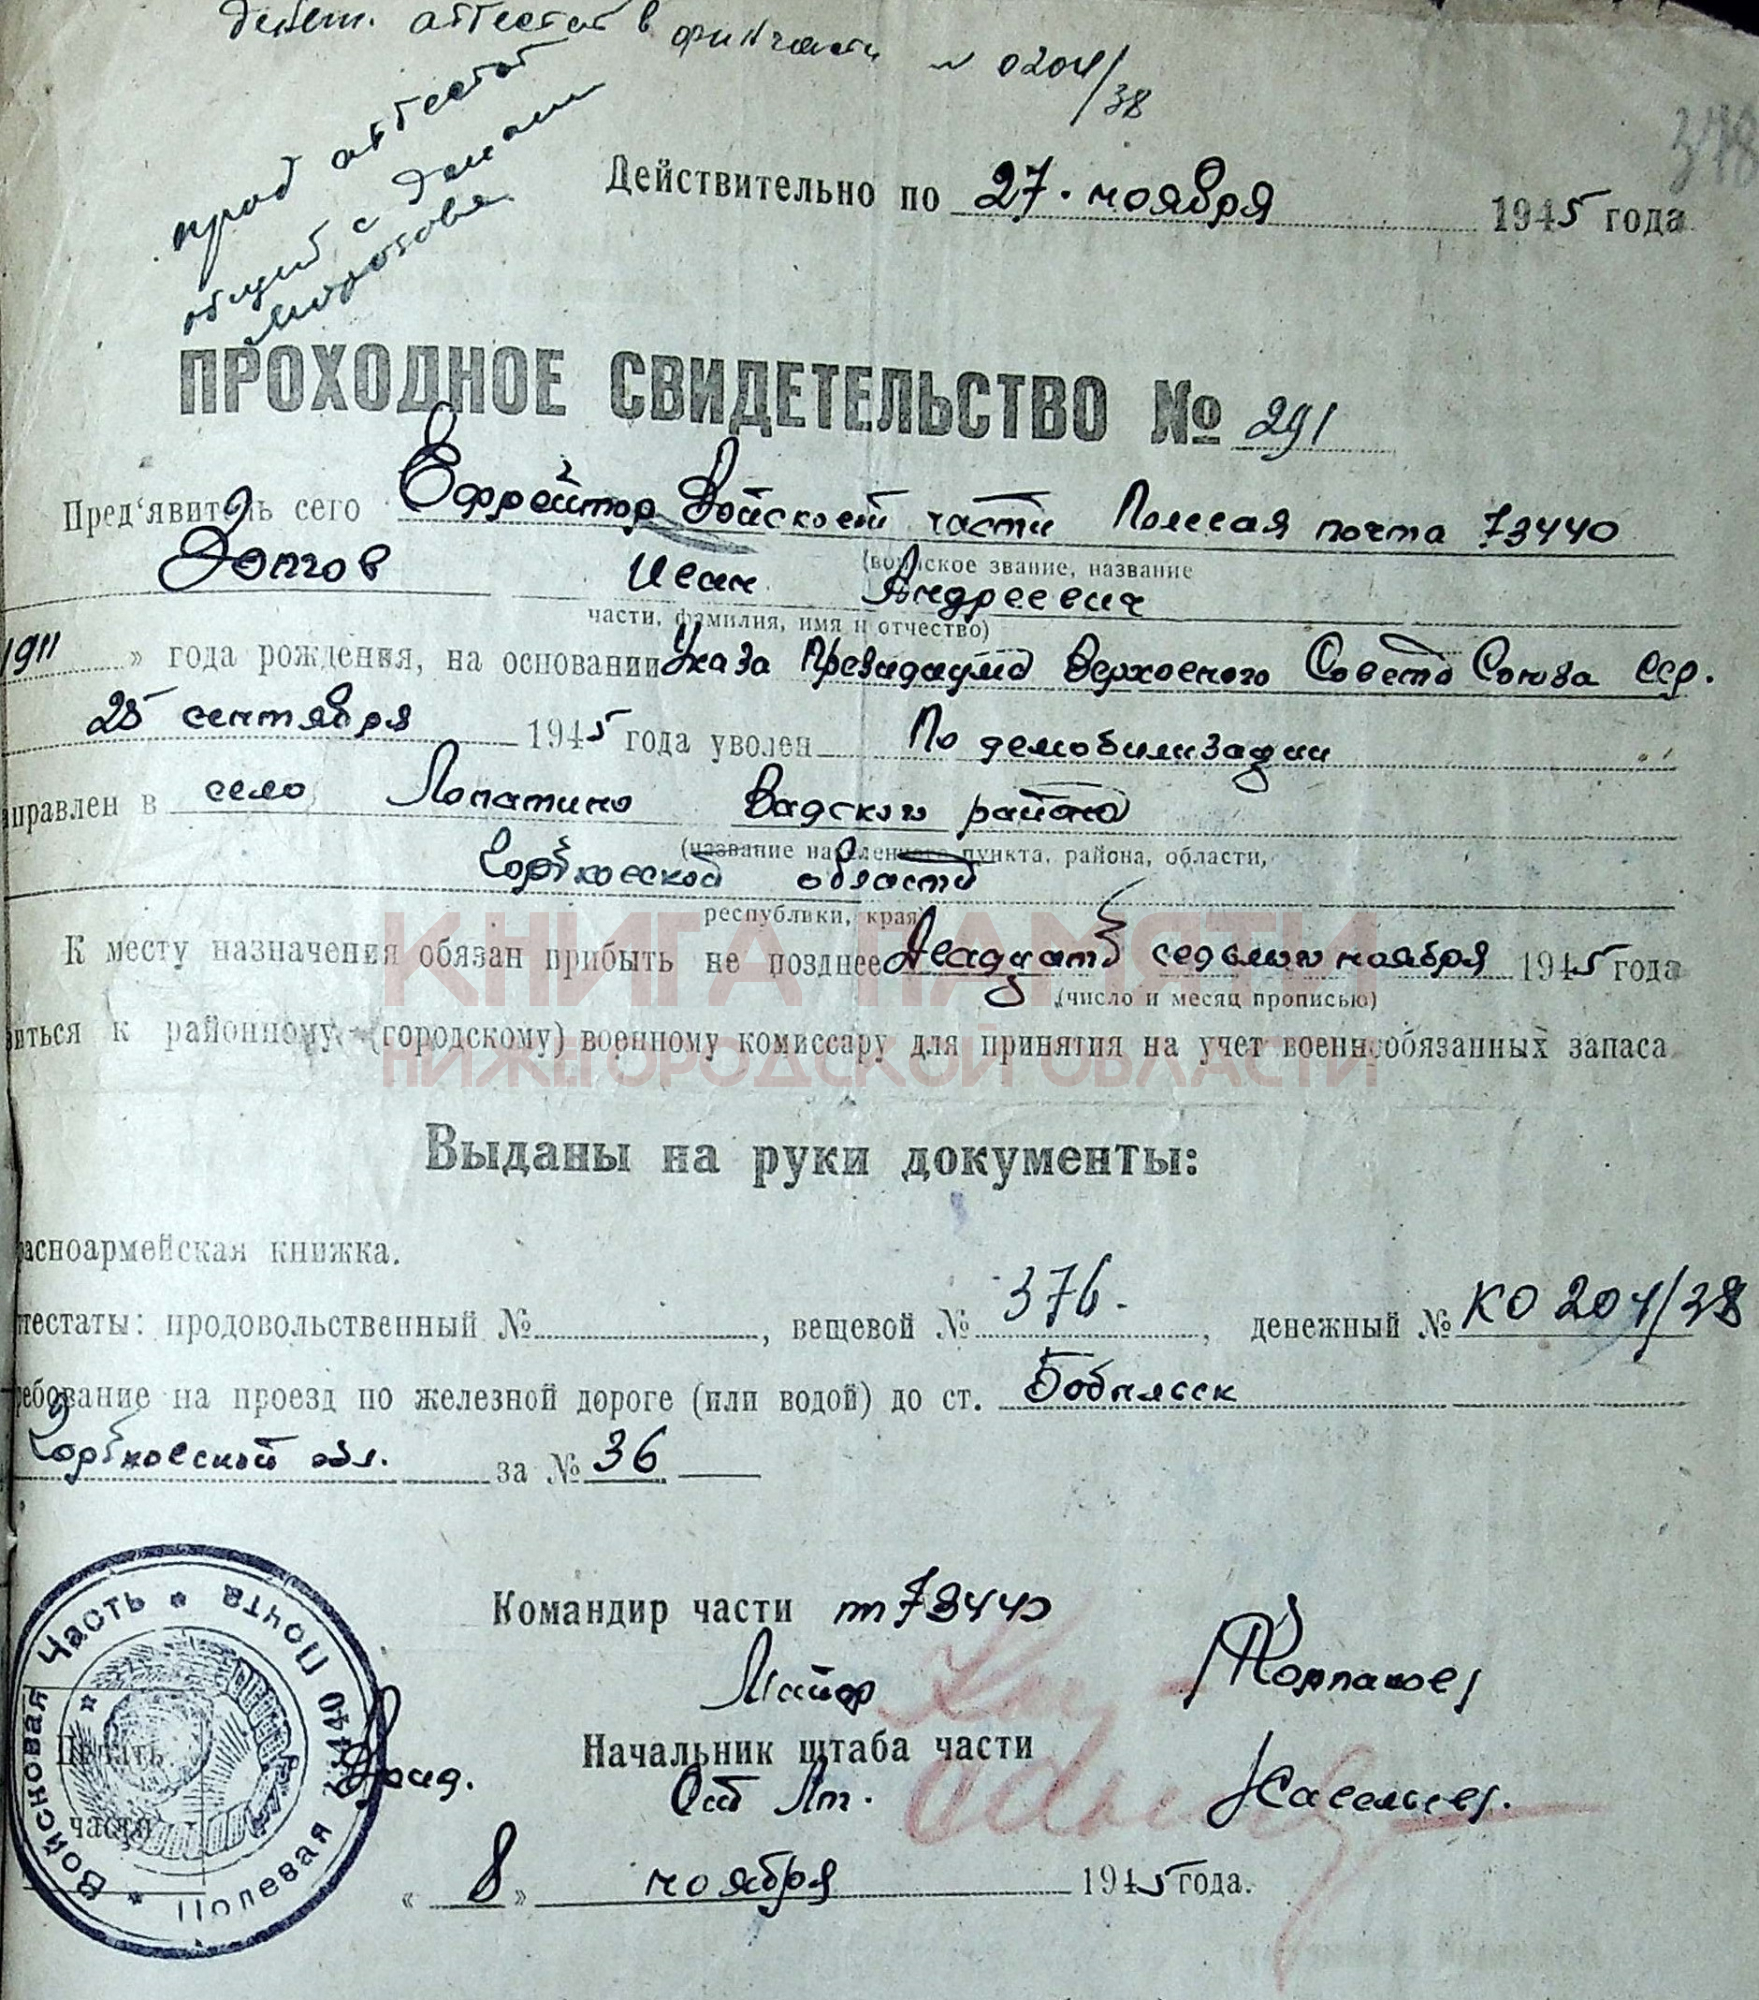 денеж. аттестат в финчасти № 0204/38
прод аттестат
общий с
348
Действительно по 27. ноября 1945 года
ПРОХОДНОЕ СВИДЕТЕЛЬСТВО № 291
Пред‘явитель сего Ефрейтор Войсковой части Полевая почта 73440
(воинское звание, название
Долгов Иван Андреевич
части, фамилия, имя и отчество)
1911 » года рождения, на основании Указа Президиума Верховного Совета Союза ССР.
25 сентября 1945 года уволен По демобилизации
аправлен в село Лопатино Вадского района
(название населенного пункта, района, области,
Горьковской области
республики, края)
К месту назначения обязан прибыть не позднее Двадцать седьмого ноября 1945 года
(число и месяц прописью)
виться к районному (городскому) военному комиссару для принятия на учет военнообязанных запаса
КНИГА ПАМЯТИ
НИЖЕГОРОДСКОЙ ОБЛАСТИ
Выданы на руки документы:
расноармейская книжка.
ттестаты: продовольственный № , вещевой № 376. , денежный № КО 204/38
ребование на проезд по железной дороге (или водой) до ст. Бобыльск
Горьковской обл. за № 36
Командир части пп 73440
Майор
Начальник штаба части
Ст Лт. Савельев.
Печать
части
Войсковая Часть * Полевая Почта 73440
« 8 » ноября 1945 года.